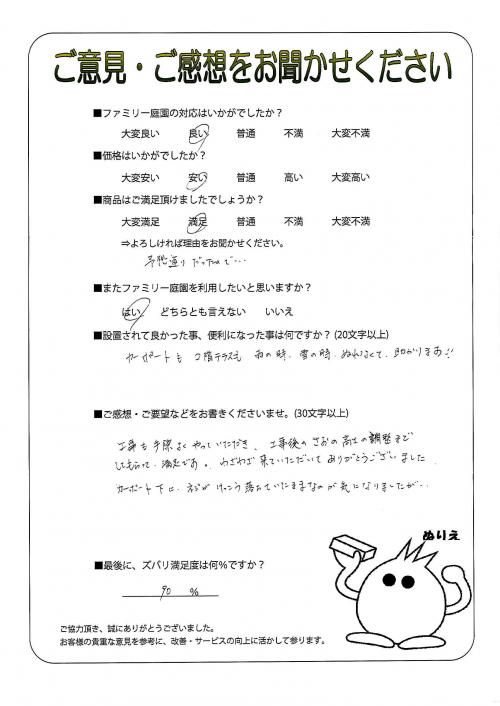 ご意見・ご感想をお聞かせください
■ファミリー庭園の対応はいかがでしたか？
大変良い 良い 普通 不満 大変不満
■価格はいかがでしたか？
大変安い 安い 普通 高い 大変高い
■商品はご満足頂けましたでしょうか？
大変満足 満足 普通 不満 大変不満
⇒よろしければ理由をお聞かせください。
予想通りだったので…
■またファミリー庭園を利用したいと思いますか？
はい どちらとも言えない いいえ
■設置されて良かった事、便利になった事は何ですか？(20文字以上)
カーポートも 2階テラスも 雨の時、雪の時、ぬれなくて、助かります!!
■ご感想・ご要望などをお書きくださいませ。(30文字以上)
工事も手際よくやっていただき、工事後のさおの高さの調整まで
してもらって、満足です。わざわざ来ていただいてありがとうございました
カーポート下に、ネジがけっこう落ちていたままなのが気になりましたが…
ぬりえ
■最後に、ズバリ満足度は何％ですか？
90 ％
ご協力頂き、誠にありがとうございました。
お客様の貴重な意見を参考に、改善・サービスの向上に活かして参ります。